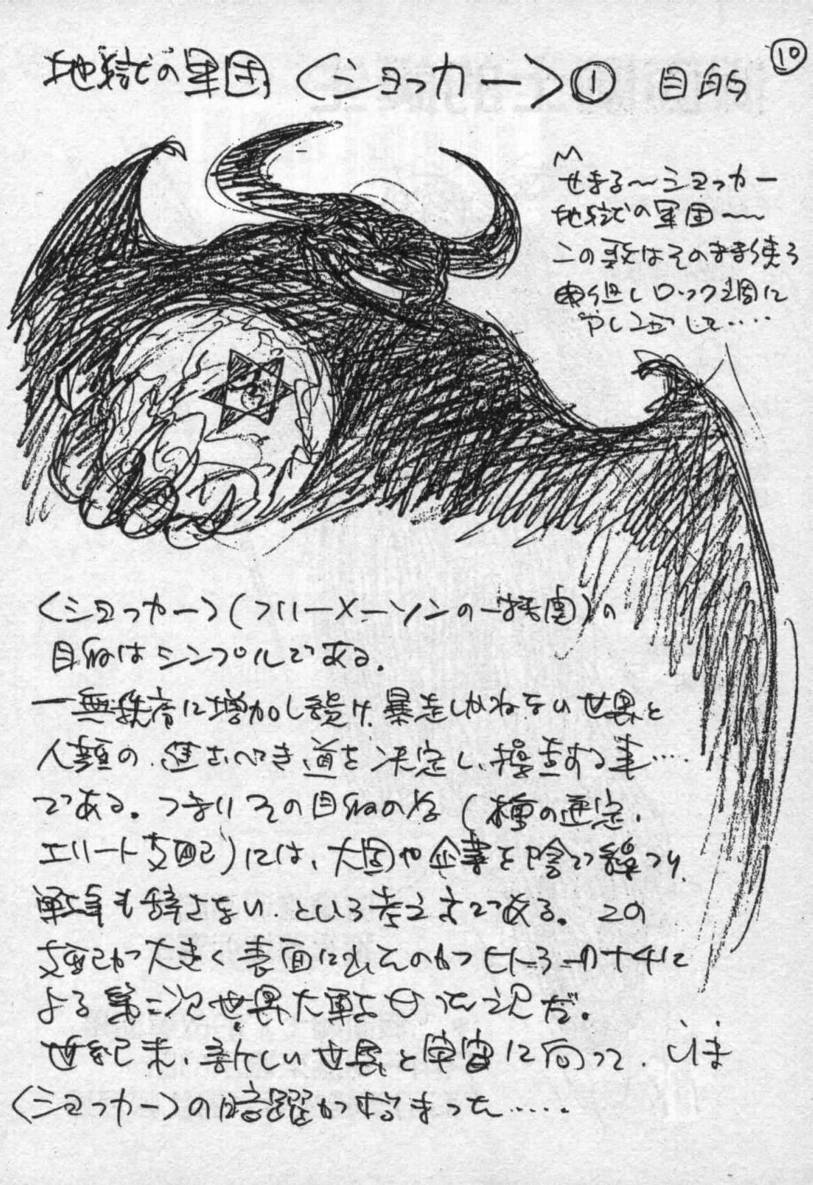 ⑩
地獄の軍団〈ショッカー〉① 目的
せまる〜ショッカー
地獄の軍団〜
この歌はそのまま使う
申し ロック調に
して‥‥
〈ショッカー〉(フリーメーソンの一)の
目的はシンプルである。
―無秩序に増加し続け、暴走しかねない世界と
人類の、進むべき道を決定し、操る事‥‥
である。つまりその目的の為(種の選定、
エリート支配)には、大国や企業を陰で操つり、
戦争も辞さない、という考え方である。この
支配が大きく表面に出たのがヒトラーのナチに
よる第二次世界大戦だ。
世紀末、新しい世界と宇宙に向って、いま
〈ショッカー〉の暗躍が始まった‥‥‥